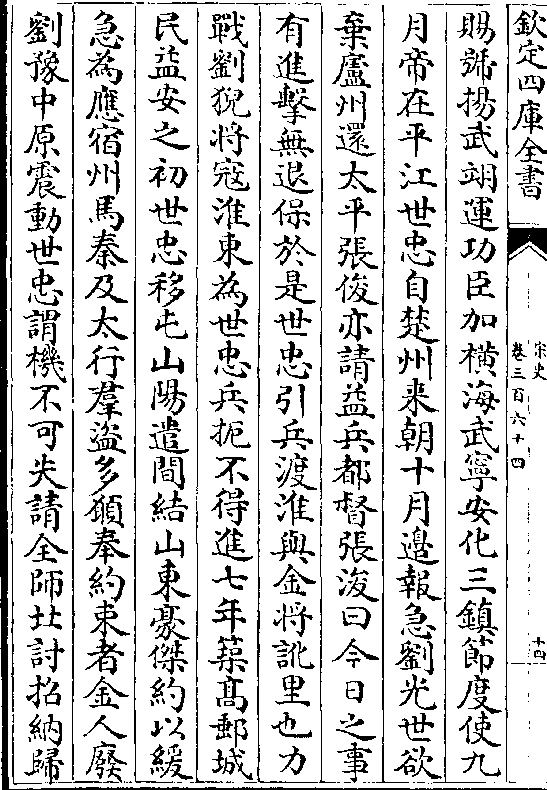 欽定四庫全書
宋史
卷三百六十四
十四
賜號揚武翊運功臣加橫海武寧安化三鎮節度使九
月帝在平江世忠自楚州來朝十月邉報急劉光世欲
棄廬州還太平張俊亦請益兵都督張浚曰今日之事
有進擊無退保於是世忠引兵渡淮與金將訛里也力
戰劉猊將寇淮東為世忠兵扼不得進七年築髙郵城
民益安之初世忠移屯山陽遣間結山東豪傑約以緩
急為應宿州馬秦及太行羣盜多願奉約束者金人廢
劉豫中原震動世忠謂機不可失請全師北討招納歸